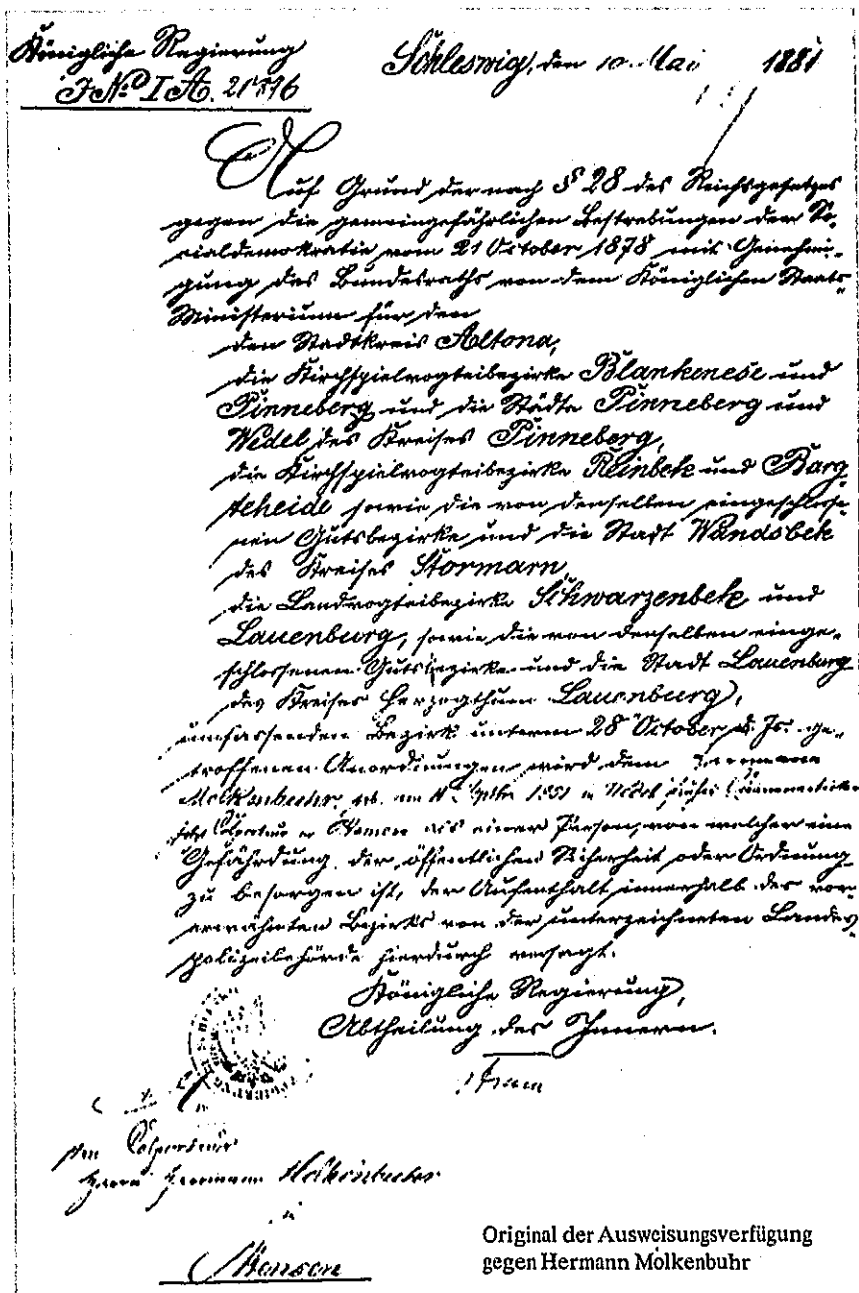 Königliche Regierung
Schleswig, den 10. Mai 1881
JNo. I A.
Auf Grund der nach § 28 des Reichsgesetzes
gegen die gemeingefährlichen Bestrebungen der So-
cialdemokratie vom 21 October 1878 mit Genehmi-
gung des Bundesraths von dem Königlichen Staats-
Ministerium für den
den Stadtkreis Altona,
die Kirchspielvogteibezirke Blankenese und
Pinneberg und die Städte Pinneberg und
Wedel des Kreises Pinneberg,
die Kirchspielvogteibezirke Reinbek und Barg-
teheide sowie die von denselben eingeschlosse-
nen Gutsbezirke und die Stadt Wandsbek
des Kreises Stormarn,
die Landvogteibezirke Schwarzenbek und
Lauenburg, sowie die von denselben einge-
schlossenen Gutsbezirke und die Stadt Lauenburg
des Kreises Herzogthum Lauenburg,
umfassenden Bezirk unterm 28 October d. Js. ge-
troffenen Anordnungen wird dem Hermann
Molkenbuhr, geb. am 1851 in Wedel
Colporteur als einer Person, von welcher eine
Gefährdung der öffentlichen Sicherheit oder Ordnung
zu besorgen ist, der Aufenthalt innerhalb des vor-
erwähnten Bezirks von der unterzeichneten Landes-
polizeibehörde hierdurch versagt.
Königliche Regierung,
Abtheilung des Innern.
den Colporteur
Herrn Hermann Molkenbuhr
Original der Ausweisungsverfügung
gegen Hermann Molkenbuhr